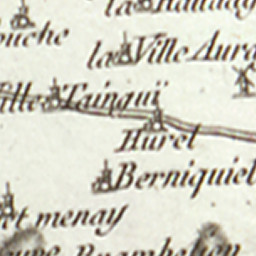 la
ouche
la Ville Aura
ille Tainguï
Hurel
Berniquiel
et menay